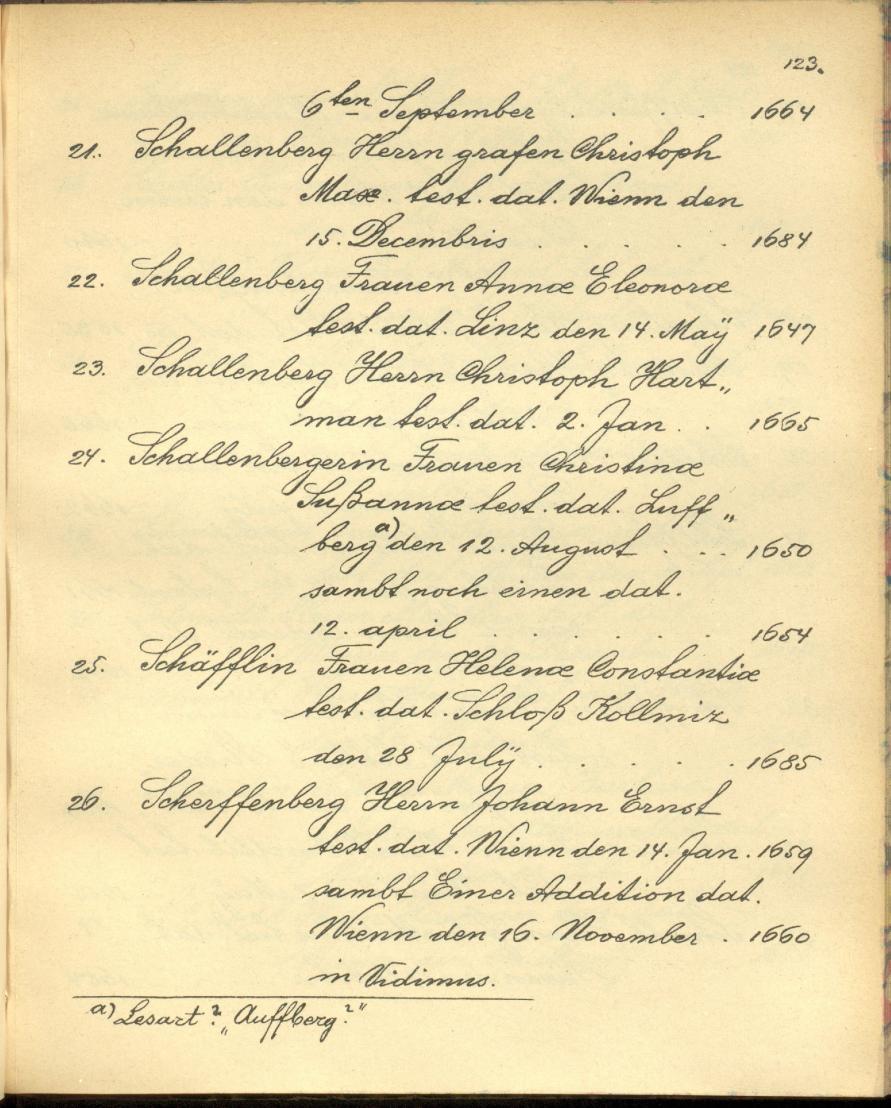 123.
6ten September . . . . 1664
21. Schallenberg Herrn grafen Christoph
Max. test. dat. Wienn den
15. Decembris . . . . 1684
22. Schallenberg Frauen Annæ Eleonoræ
test. dat. Linz den 14. Maÿ 1647
23. Schallenberg Herrn Christoph Hart„
man test. dat. 2. Jan . . 1665
24. Schallenbergerin Frauen Christinæ
Sußannæ test. dat. Luff„
berg a) den 12. August . . . 1650
sambt noch einen dat.
12. april . . . . . . 1654
25. Schäfflin Frauen Helenæ Constantiæ
test. dat. Schloß Kollmiz
den 28 Julÿ . . . . . 1685
26. Scherffenberg Herrn Johann Ernst
test. dat. Wienn den 14. Jan. 1659
sambt Einer Addition dat.
Wienn den 16. November . 1660
in Vidimus.
a) Lesart? „Auffberg?“